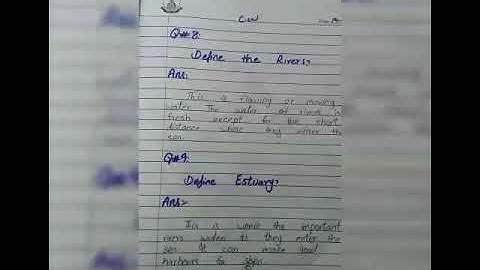 C.W
Q#8:
Define the Rivers:
Ans:
This is flowing or moving
water. The water of rivers is
fresh except for the short
distance where they enter the
sea.
Q#9:
Define Estuary:
Ans:-
This is where the important
rivers widen as they enter the
sea. It can make good
harbours for